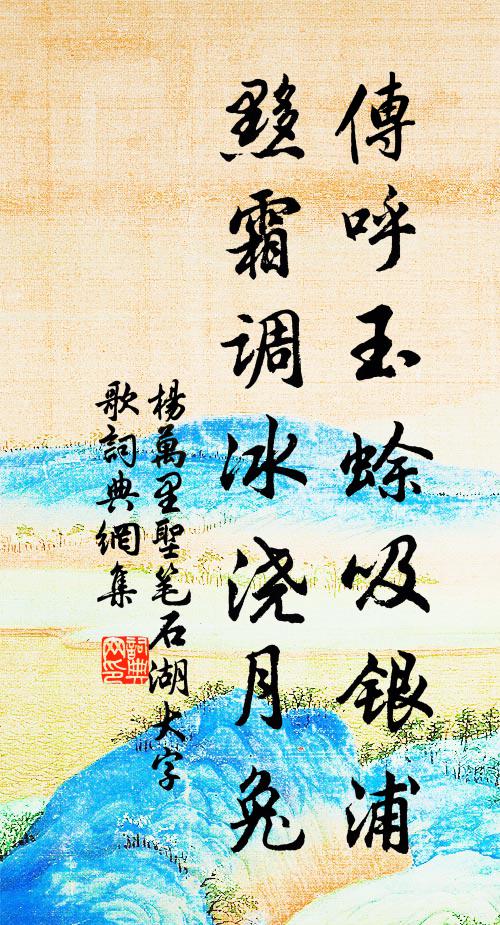 傳呼玉蜍吸银浦
黟霜调冰浇月兔
楊萬里聖笔石湖大字
歌詞典網集
詞典